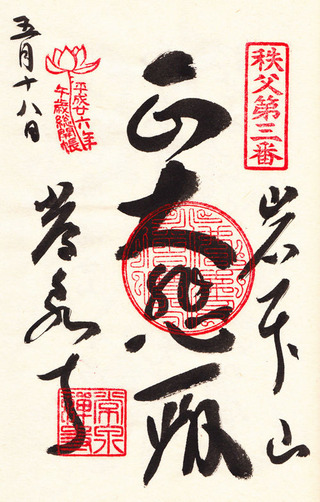 秩父第三番
岩本山
正大悲殿
常泉寺
平成廿六年
午歳総開帳
五月十八日
常泉
禅寺